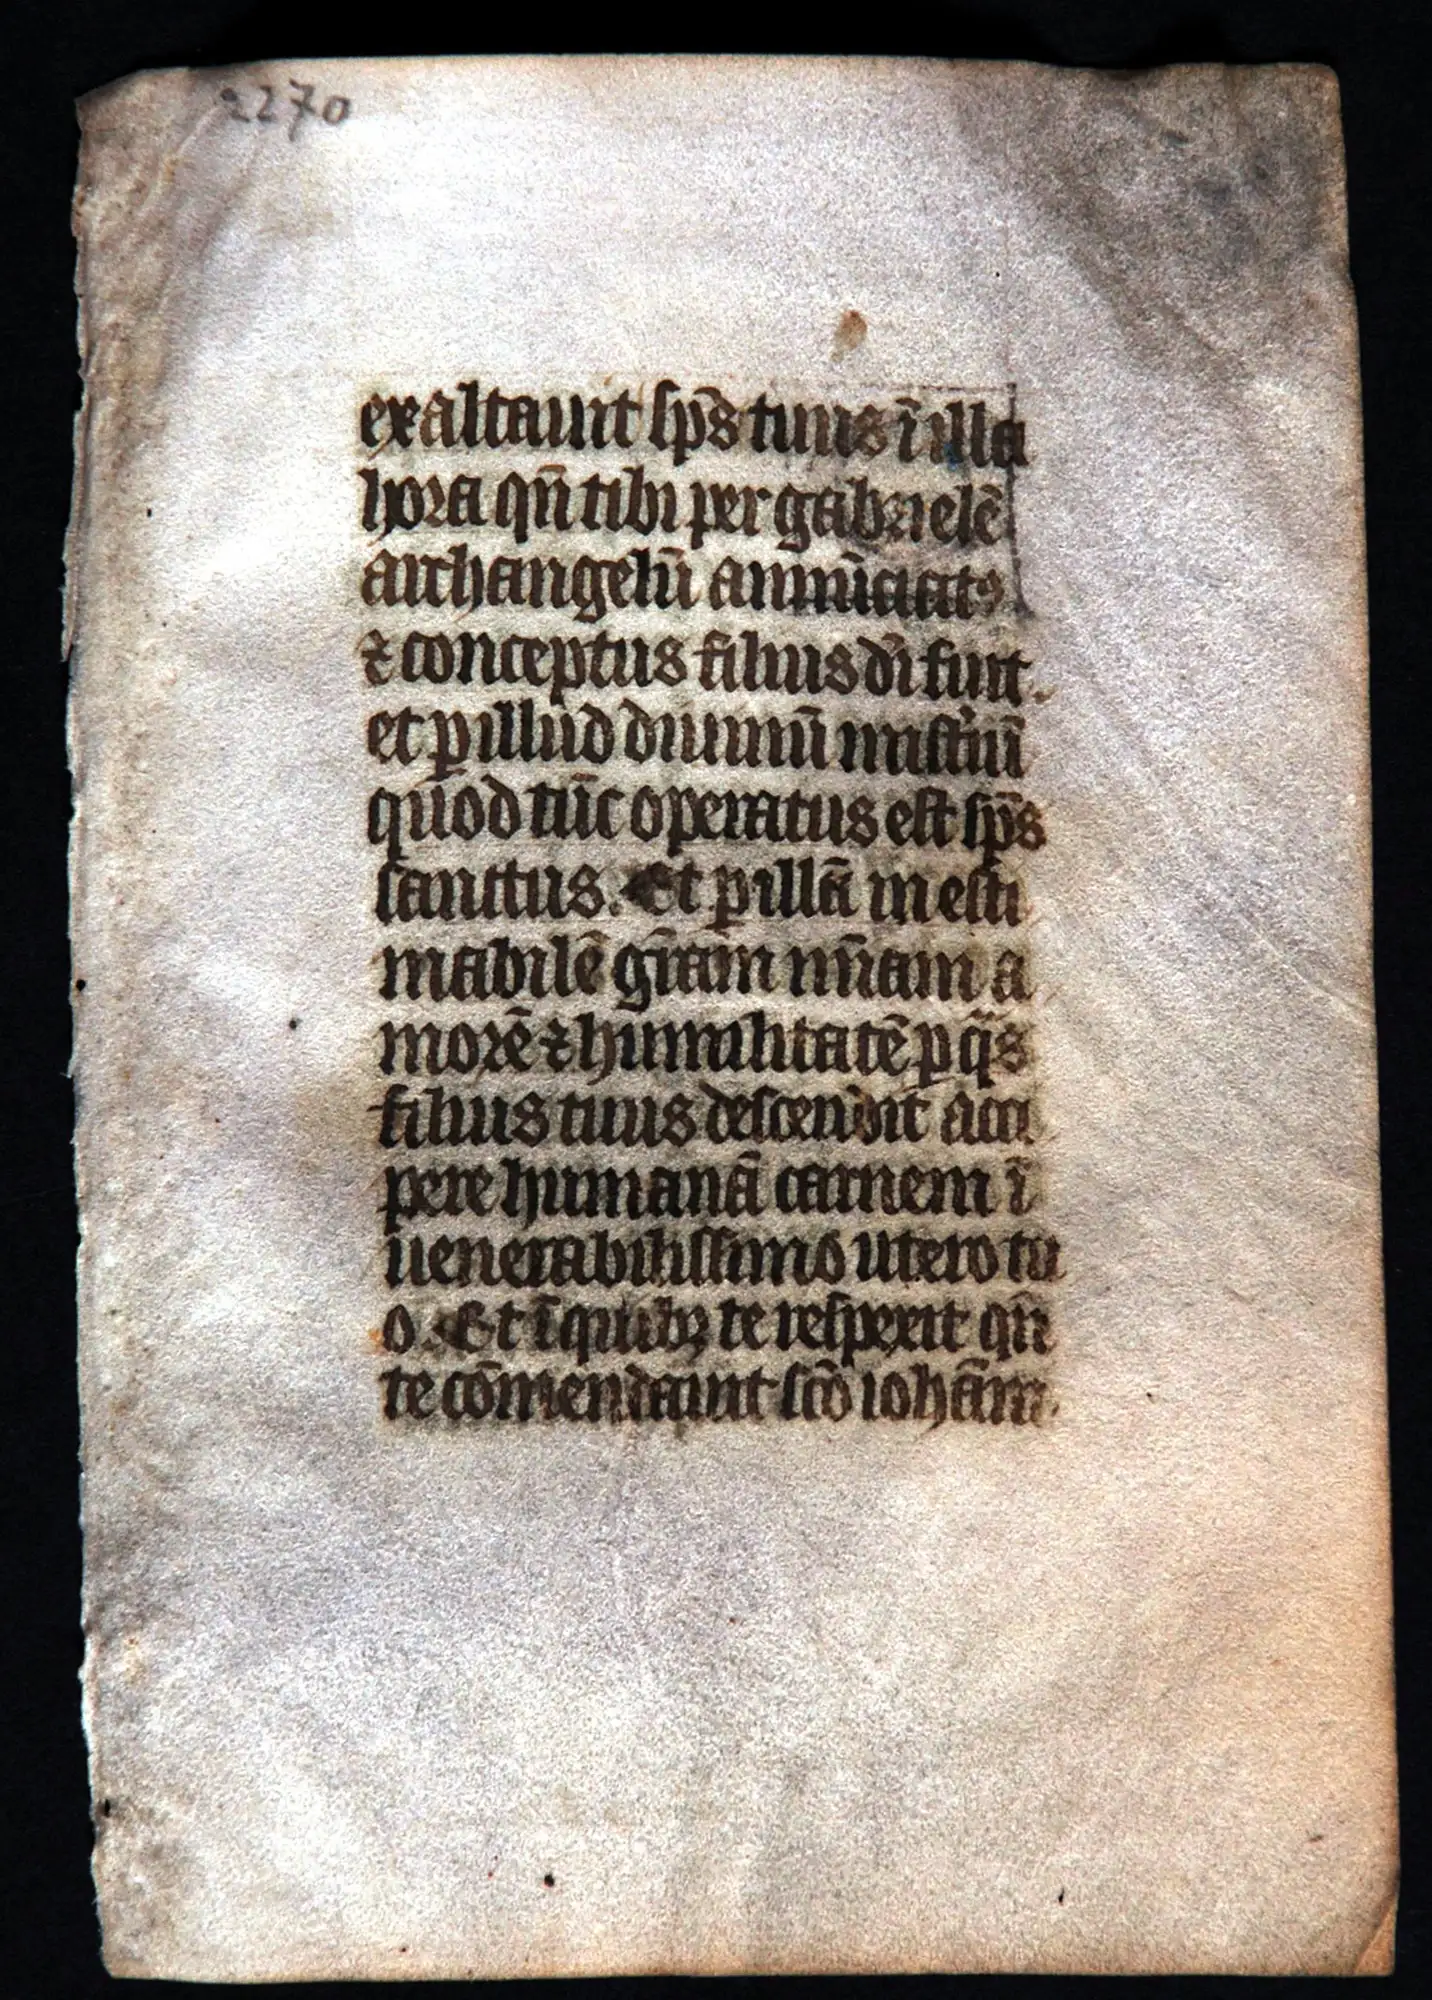 2270
exaltauit sp̄s tuus ī illa
hora qn̄ tibi per gabrielē
archangelū annūciatꝰ
⁊ conceptus filius dī fuit.
et ꝑ illud diuinū mist̾iū
quod tūc operatus est sp̄s
sanctus. Et ꝑ illā inesti
mabilē gr̄am mīam a
morē ⁊ humilitatē ꝑ q̄s
filius tuus descendit acci
pere humanā carnem ī
uenerabilissimo utero tu
o. Et ī quibꝫ te respexit qn̄
te cōmendauit sc̄o iohām.